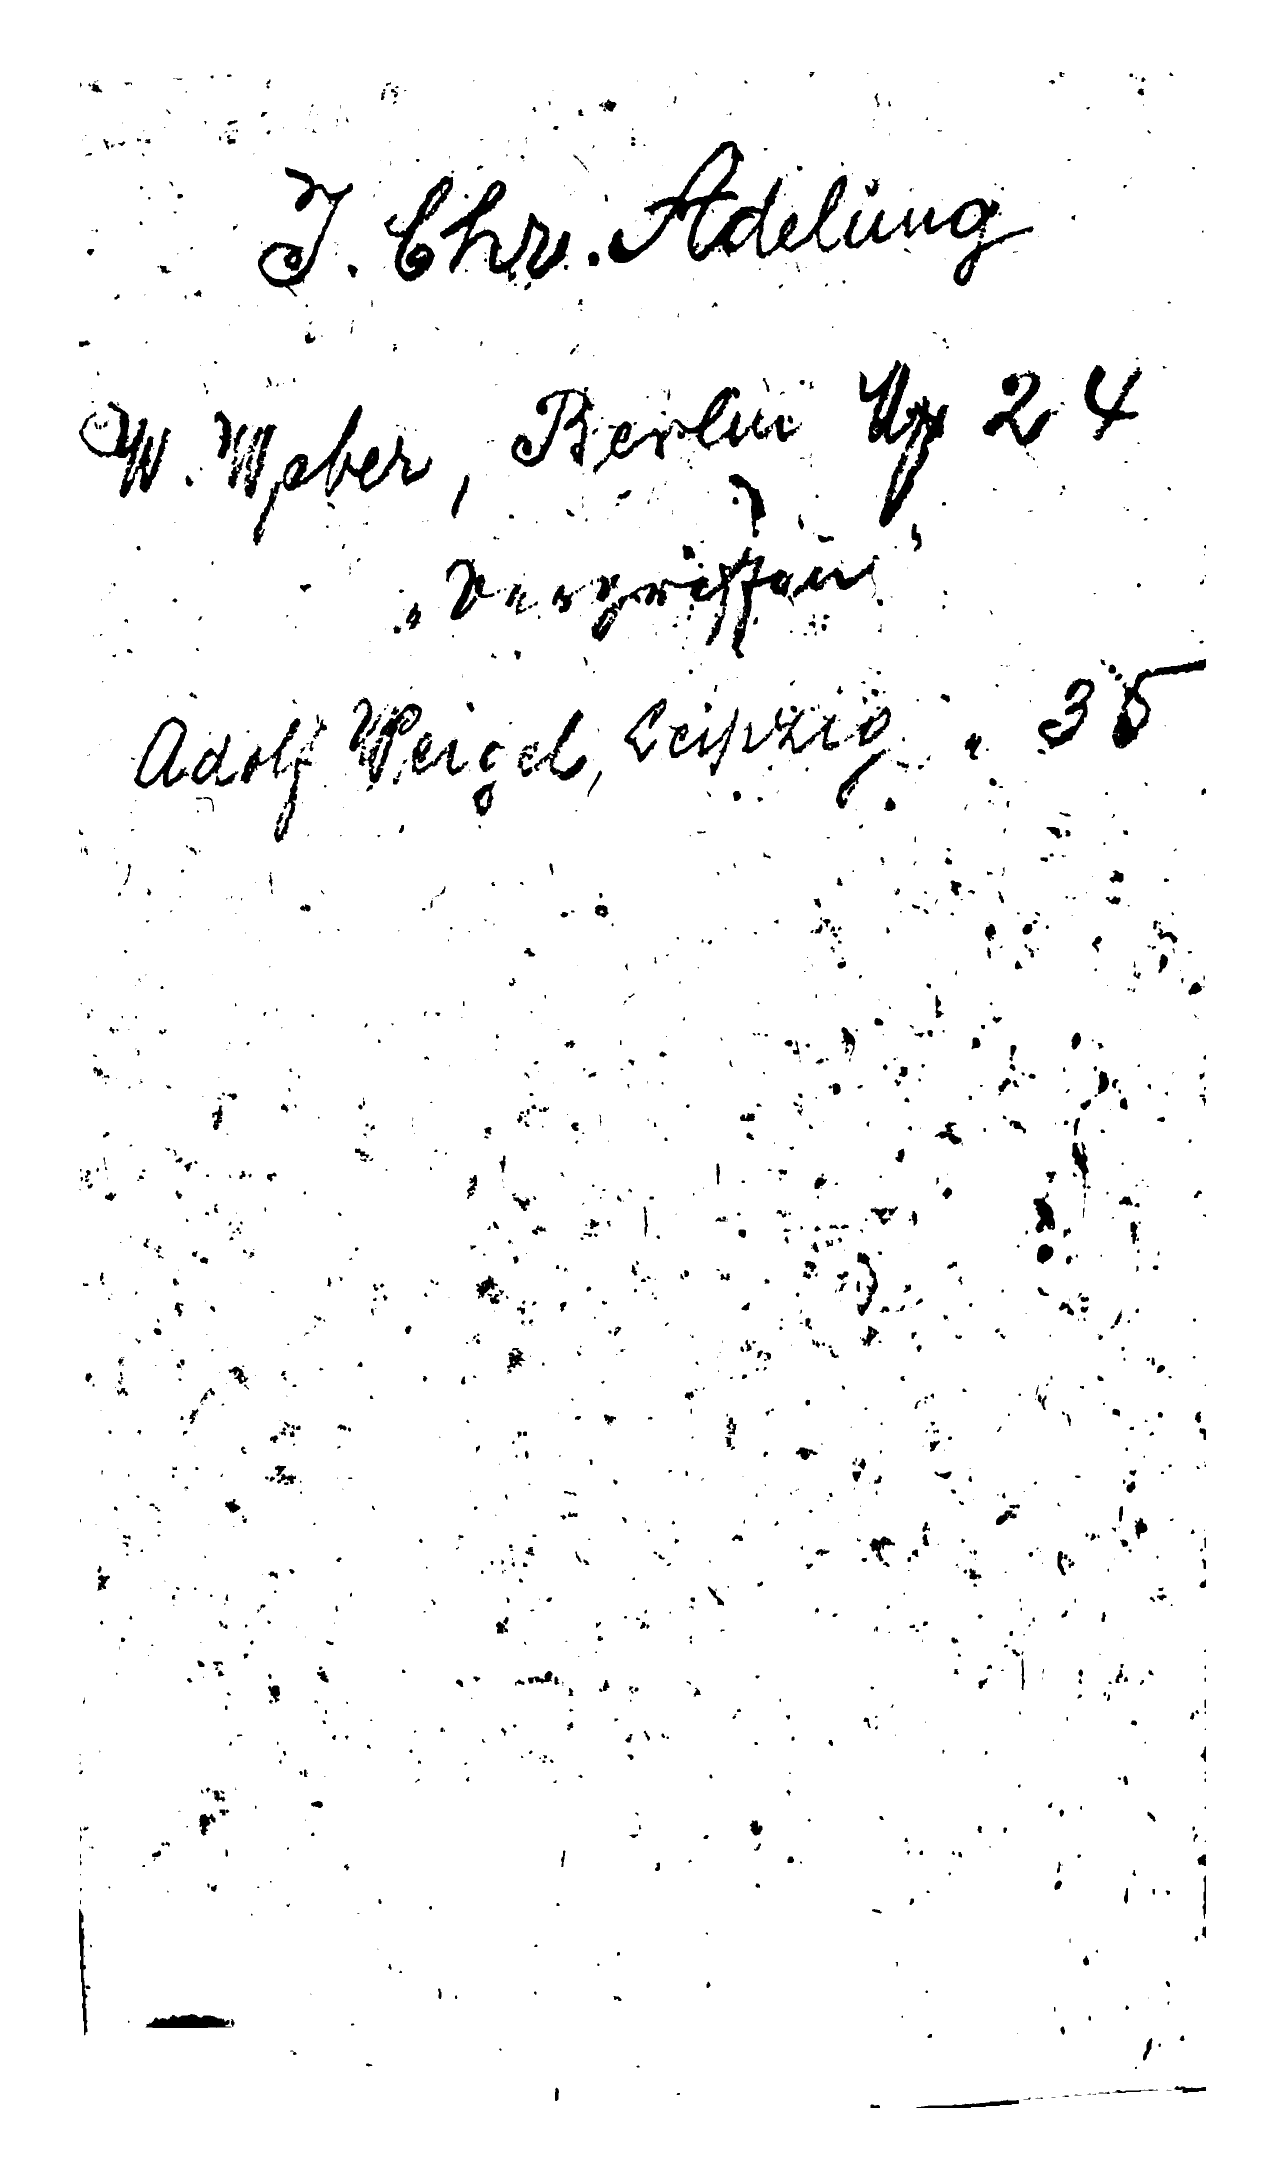 J. Chr. Adelung
W. Weber, Berlin 24
"Vergriffen"
Adolf Weigel, Leipzig " 35